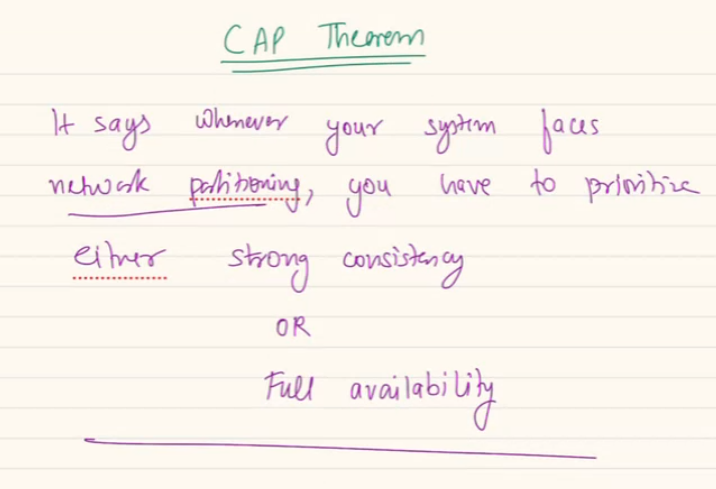 CAP Theorem
It says whenever your system faces
network partitioning, you have to prioritize
either strong consistency
OR
Full availability